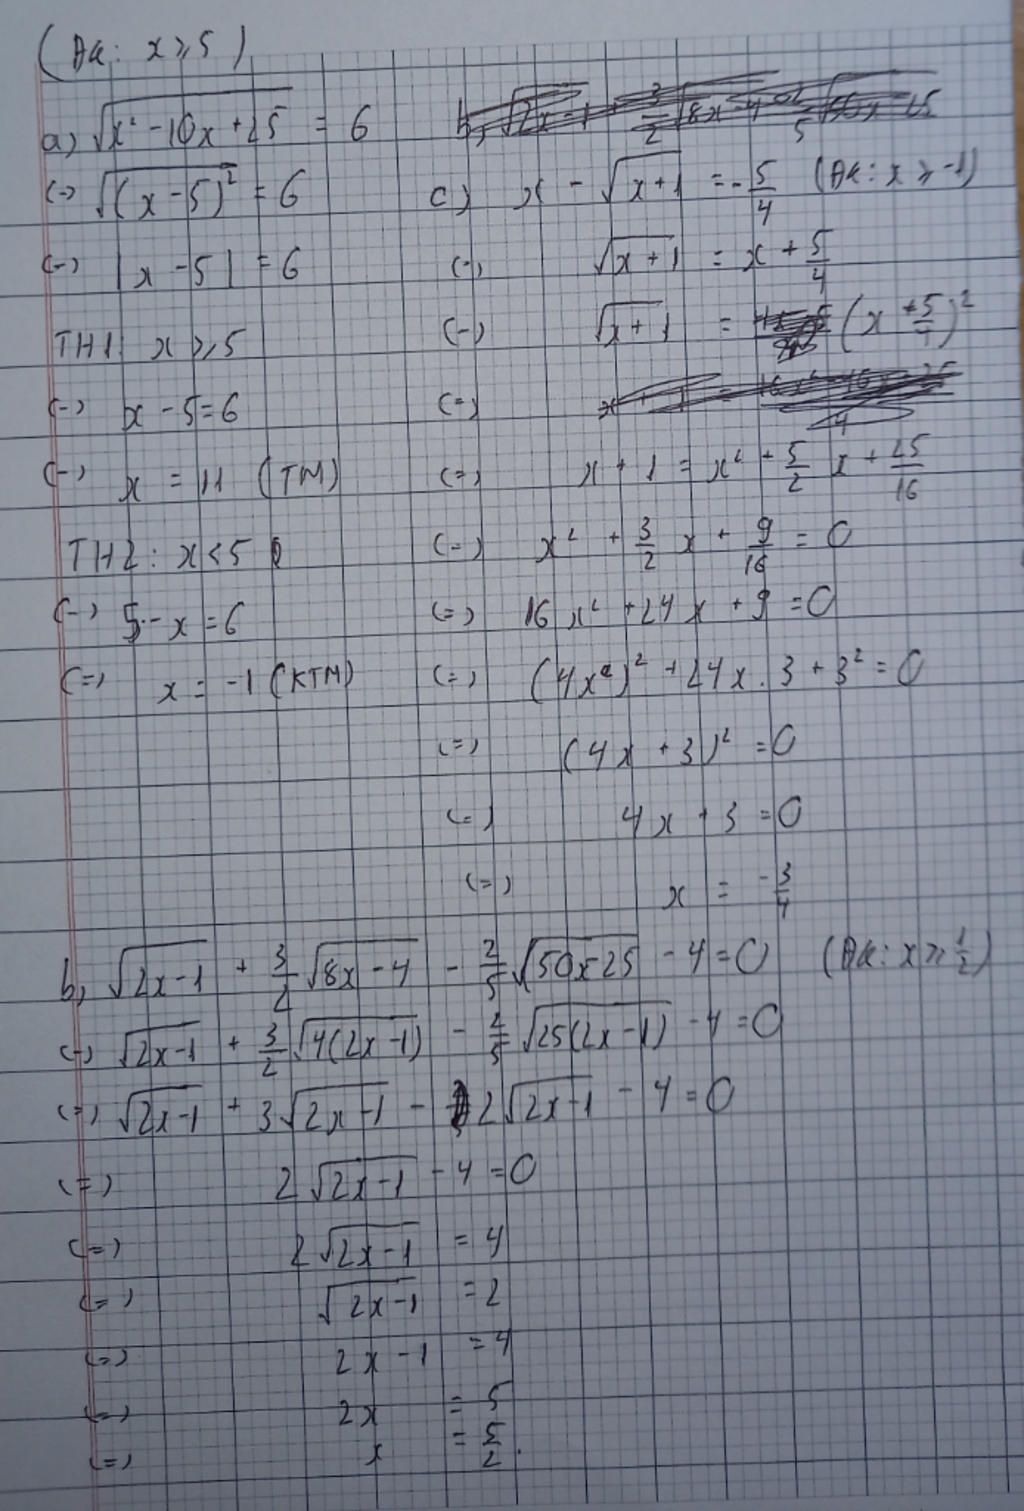 (ĐK: x ≥ 5)
a) √(x² - 10x + 25) = 6
(=) √((x - 5)²) = 6
(=) |x - 5| = 6
TH1: x ≥ 5
(=) x - 5 = 6
(=) x = 11 (TM)
TH2: x < 5
(=) 5 - x = 6
(=) x = -1 (KTM)
c) x - √(x + 1) = -5/4 (ĐK: x ≥ -1)
(=) √(x + 1) = x + 5/4
(=) √(x + 1) = (x + 5/4)²
(=)
(=) x + 1 = x² + 5/2 x + 25/16
(=) x² + 3/2 x + 9/16 = 0
(=) 16x² + 24x + 9 = 0
(=) (4x)² + 24x . 3 + 3² = 0
(=) (4x + 3)² = 0
(=) 4x + 3 = 0
(=) x = -3/4
b) √(2x - 1) + 3/2 √(8x - 4) - 2/5 √(50x - 25) - 4 = 0 (ĐK: x ≥ 1/2)
(=) √(2x - 1) + 3/2 √(4(2x - 1)) - 2/5 √(25(2x - 1)) - 4 = 0
(=) √(2x - 1) + 3√(2x - 1) - 2√(2x - 1) - 4 = 0
(=) 2√(2x - 1) - 4 = 0
(=) 2√(2x - 1) = 4
(=) √(2x - 1) = 2
(=) 2x - 1 = 4
(=) 2x = 5
(=) x = 5/2.